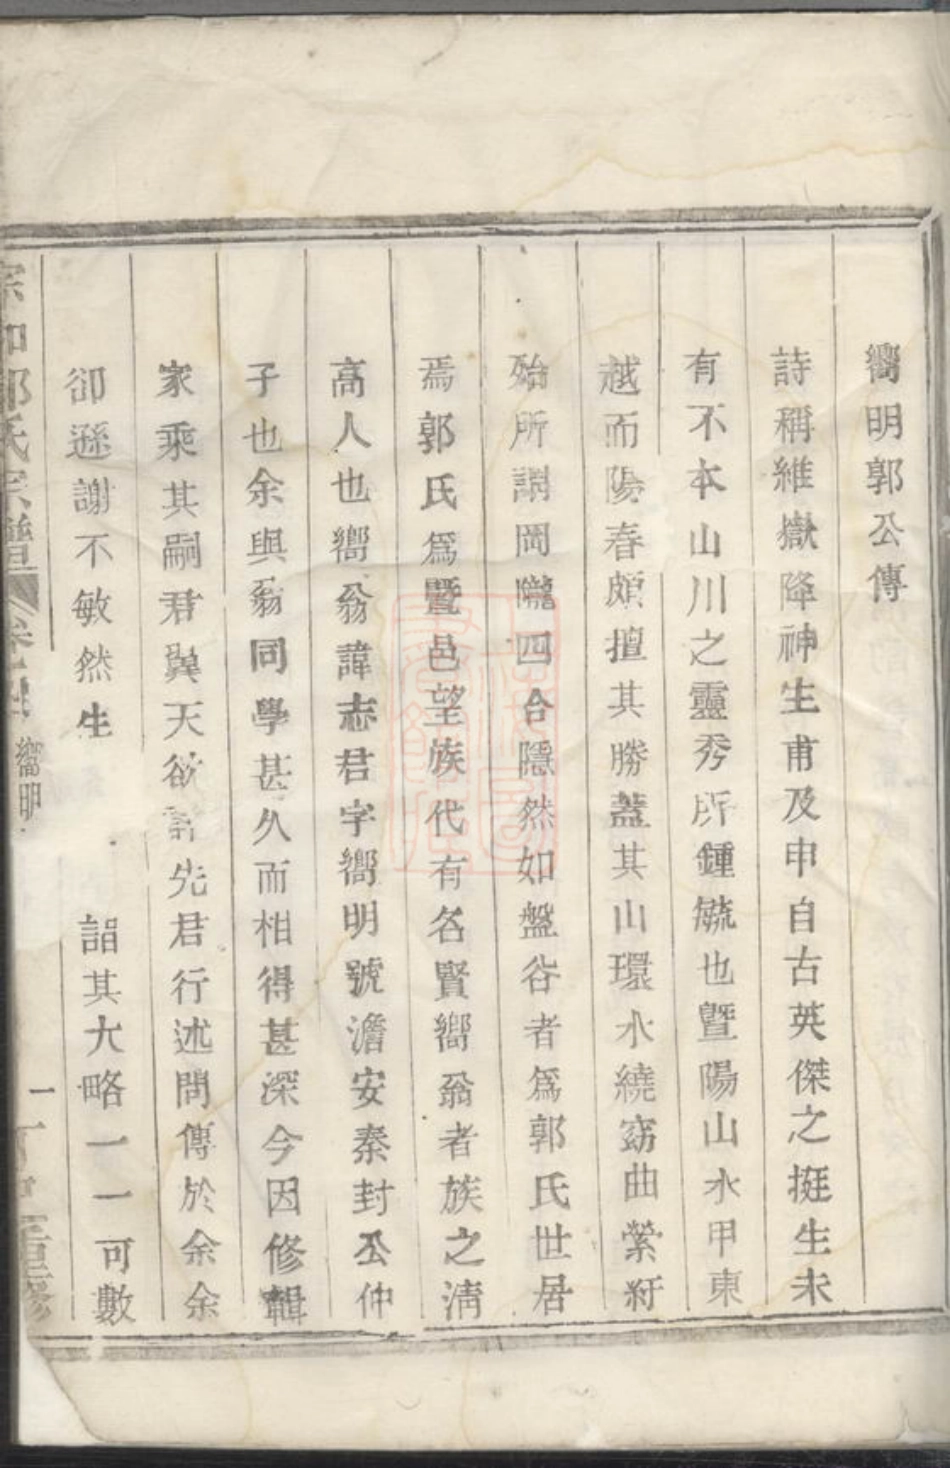 嚮明郭公傳
詩稱維嶽降神生甫及申自古英傑之挺生未
有不本山川之靈秀所鍾毓也暨陽山水甲東
越而陽春頗擅其勝蓋其山環水繞窈曲縈紆
殆所謂岡隴四合隱然如盤谷者爲郭氏世居
焉郭氏爲暨邑望族代有名賢嚮翁者族之淸
高人也嚮翁諱志君字嚮明號澹安秦封公仲
子也余與翁同學甚久而相得甚深今因修輯
家乘其嗣君巽天欲誌先君行述問傳於余余
卻遜謝不敏然生 詔其大略一一可數
郭氏宗譜 嚮明 重修